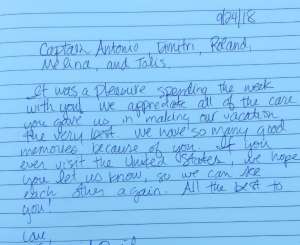 9/24/18
Captain Antonio, Dimitri, Roland,
Melina, and Talis,
It was a pleasure spending the week
with you! We appreciate all of the care
you gave us in making our vacation
the very best. We have so many good
memories because of you. If you
ever visit the United States, we hope
you let us know, so we can see
each other again. All the best to
you!
Love,